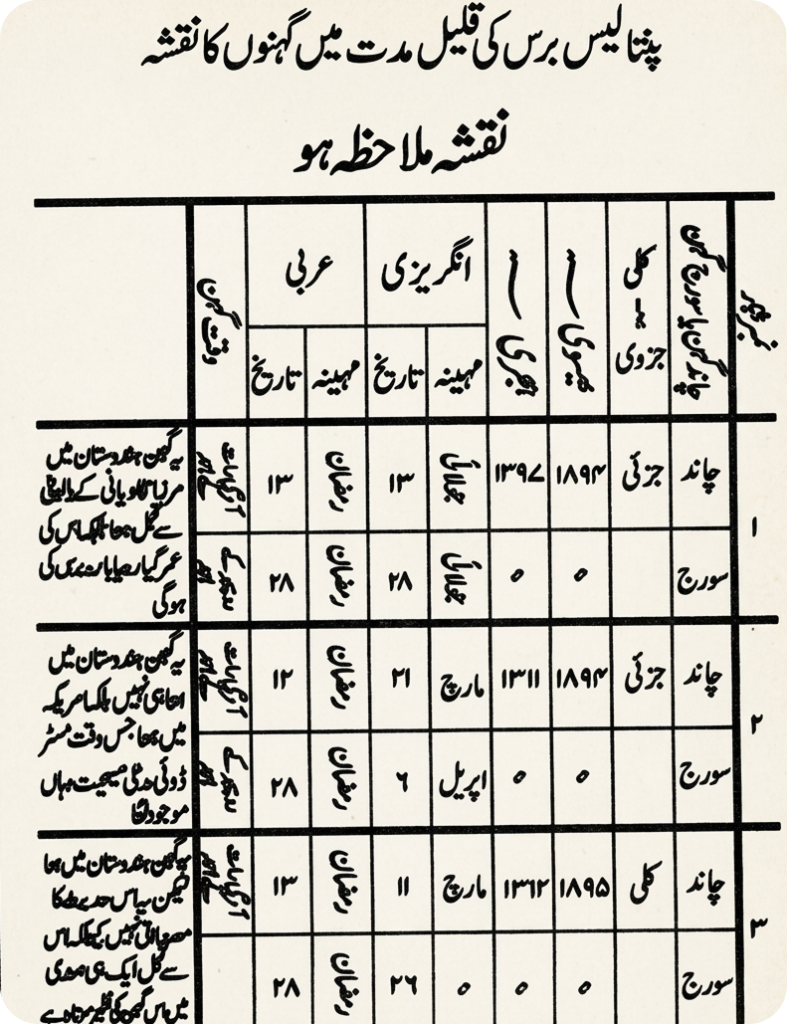 پنتالیس برس کی قلیل مدت میں گہنوں کا نقشہ
نقشہ ملاحظہ ہو
نمبر شمار
چاند گہن یا سورج گہن
کلی یا جزوی
عیسوی
ہجری
انگریزی
عربی
وقت گہن
مہینہ
تاریخ
مہینہ
تاریخ
۱
چاند جزئی ۱۸۹۴ ۱۳۹۷ جولائی ۱۳ رمضان ۱۳
سورج ۰ ۰ جولائی ۲۸ رمضان ۲۸
یہ گہن ہندوستان میں
مرزا قادیانی کے
سے قبل ہوا بلکہ اس کی
عمر گیارہ یا بارہ برس کی
ہوگی
۲
چاند جزئی ۱۸۹۴ ۱۳۱۱ مارچ ۲۱ رمضان ۱۲
سورج ۰ ۰ اپریل ۶ رمضان ۲۸
یہ گہن ہندوستان میں
ہوا ہی نہیں بلکہ امریکہ
میں ہوا جس وقت مسٹر
ڈوئی مدعی مسیحیت وہاں
موجود تھا
۳
چاند کلی ۱۸۹۵ ۱۳۶۲ مارچ ۱۱ رمضان ۱۳
سورج ۰ ۰ ۰ ۲۶ رمضان ۲۸
یہ گہن ہندوستان میں ہوا
لیکن یہ اس حدیث کا
نہیں کیونکہ اس
سے قبل ایک ہی صدی
میں اس گہن کی نظیر ہے